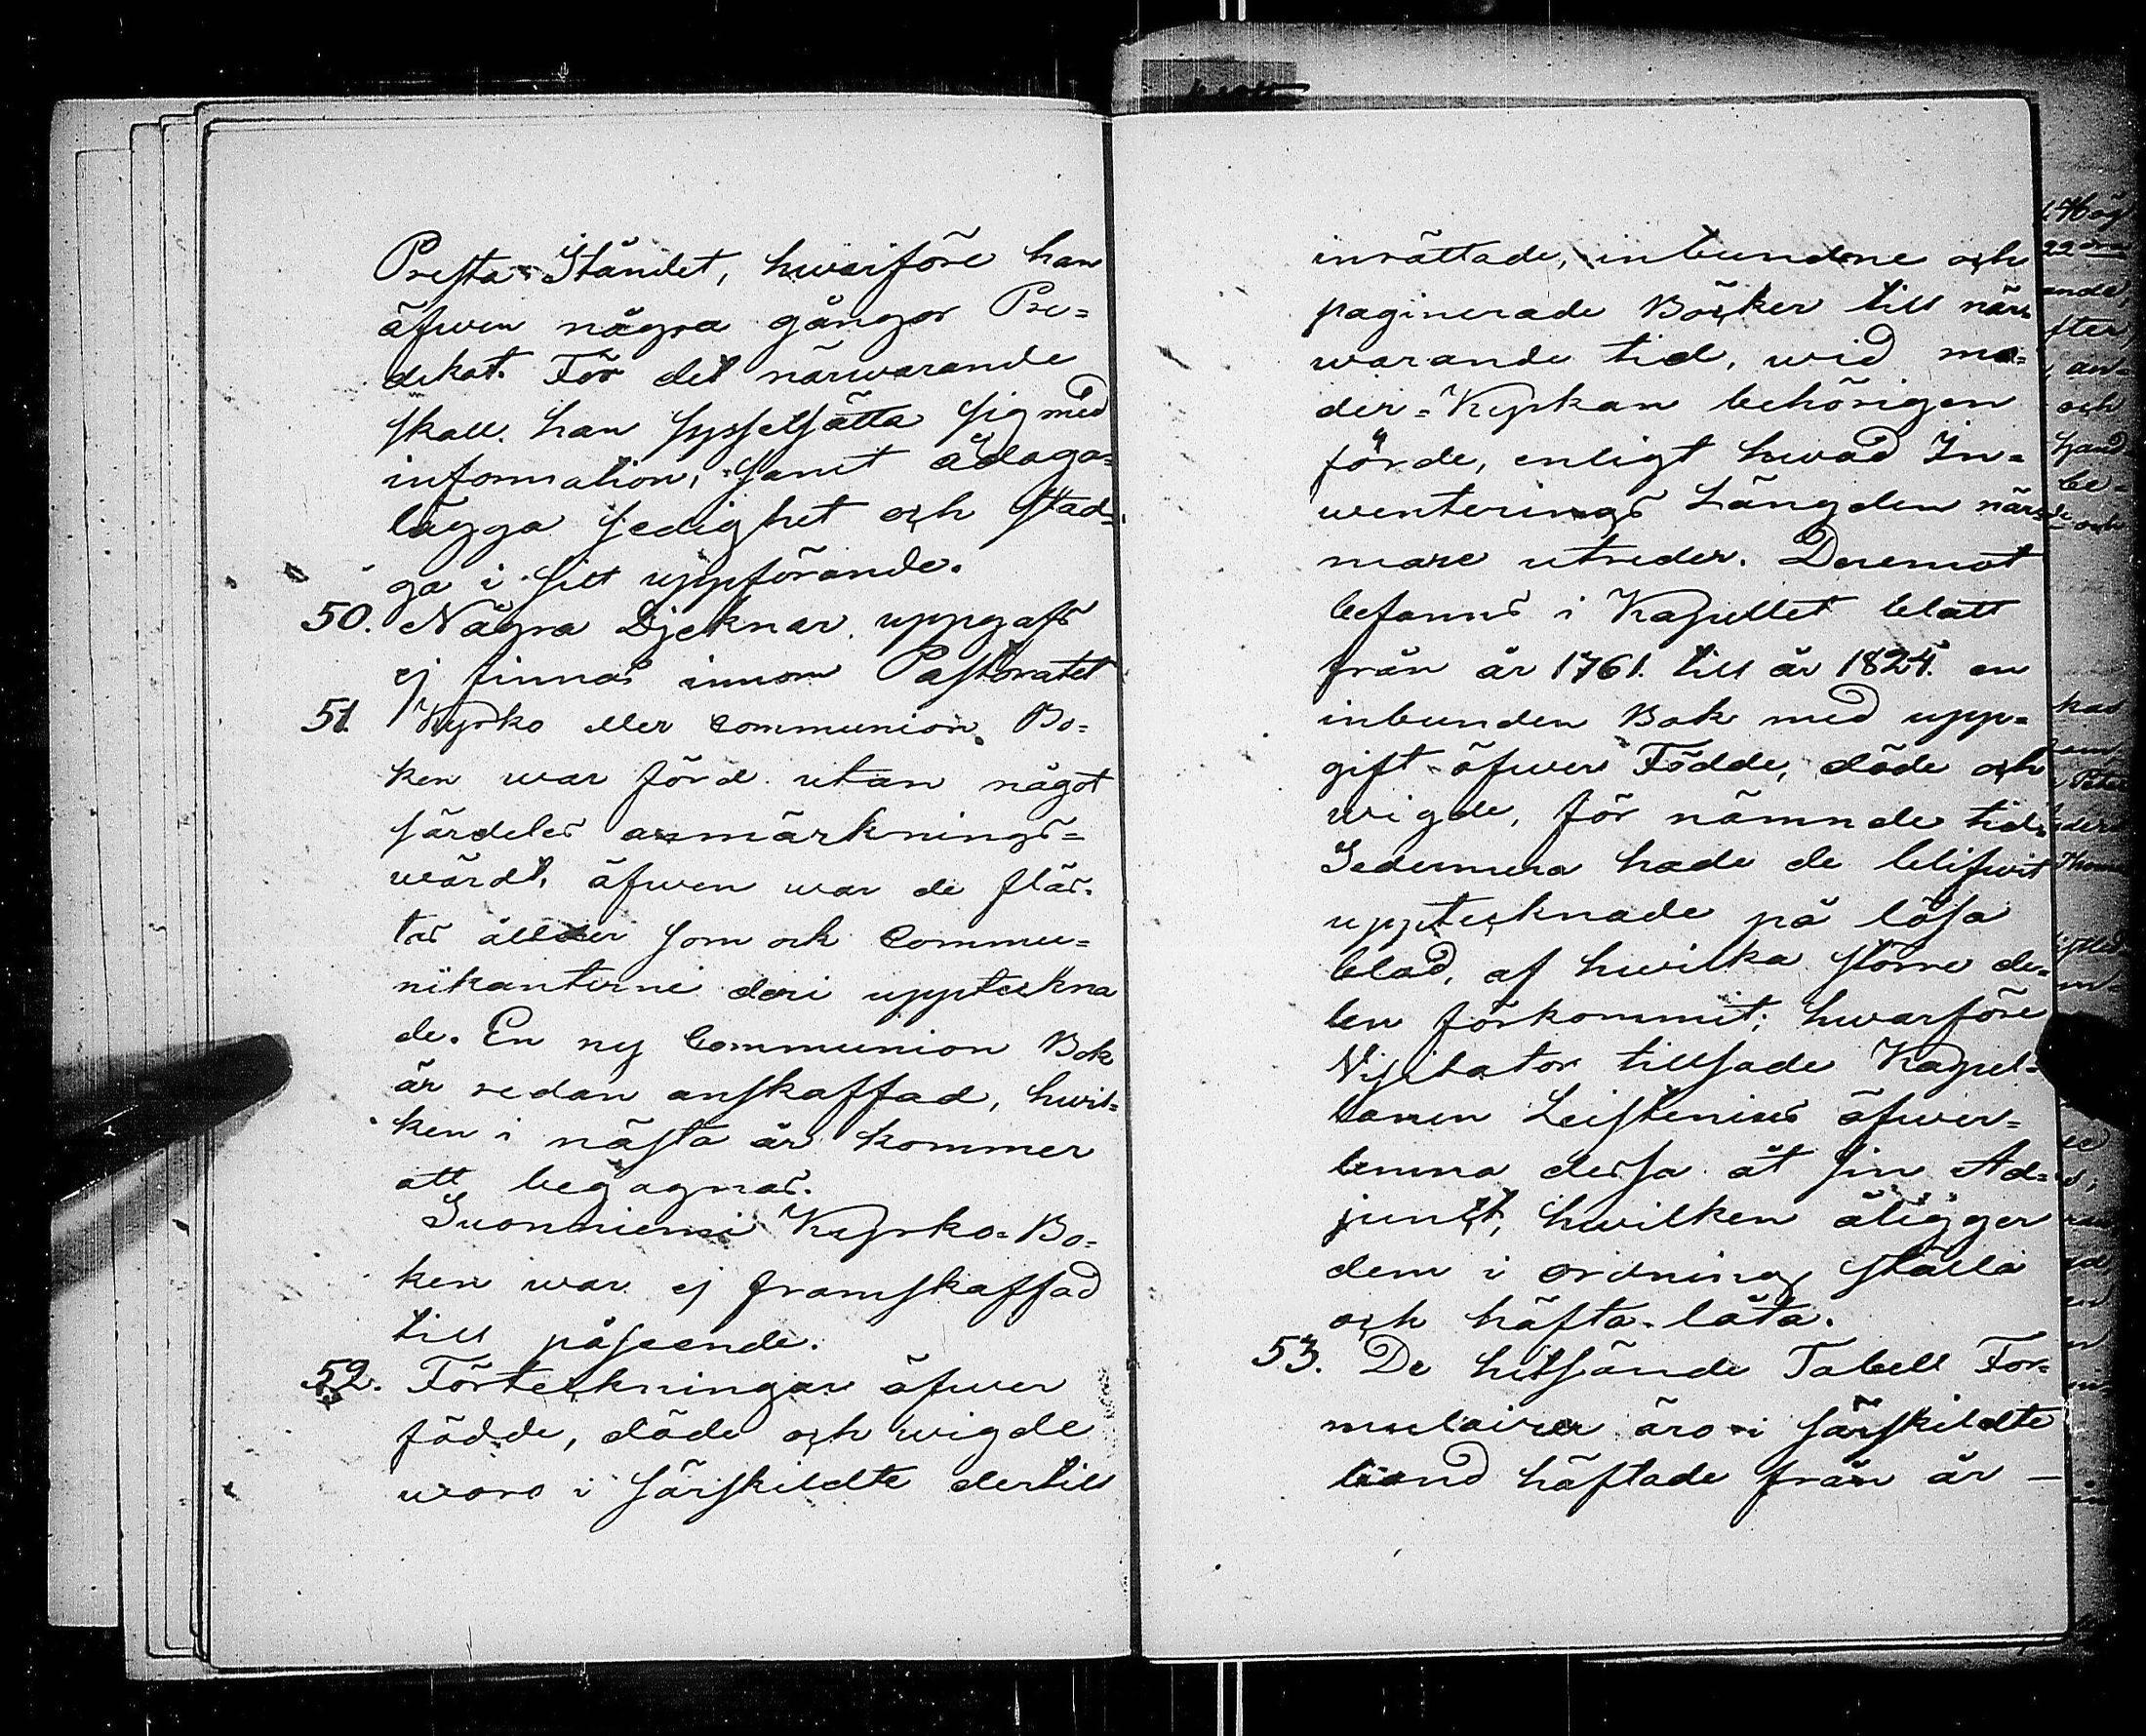 Presta-Ståndet, hwarföre han
äfwen några gånger Pre=
dikat. För det närwarande
skall han sysselsätta sig med
information, samt ådaga=
lägga sedighet och stad=
ga i sitt uppförande.
50. Några Djeknar uppgafs
ej finnas innom Pastoratet
51. Kyrko eller Communion Bo=
ken war förd utan något
särdeles anmärknings=
wärdt, äfwen war de fläs=
tas ålder som ock Commu=
nikanterne deri uppteckna
de. En ny Communion Bok
är redan anskaffad, hwil=
ken i nästa år kommer
att begagnas.
Suonniemi Kyrko=Bo=
ken war ej framskaffad
till påseende.
52. Förteckningar öfwer
födde, döde och wigde
woro i särskildte dertill
inrättade, inbundne och
paginerade Böcker till när=
warande tid, wid mo=
der=Kyrkan behörigen
förde, enligt hwad In=
wenterings Längden när=
mare utreder. Deremot
befanns i Kapellet blott
från år 1761. till år 1824. en
inbunden Bok med upp=
gift öfwer Födde, döde och
wigde, för nämnde tid.
Sedermera hade de blifwit
upptecknade på lösa
blad, af hwilka större de=
len förkommit; hwarföre
Visitator tillsade Kapel=
lanen Leistenius öfwer=
lemna dessa åt sin Ad=
junct, hwilken åligger
dem i ordning ställa
och häfta låta.
53. De hitsände Tabell For=
mulairer äro i särskildte
band häftade från år —